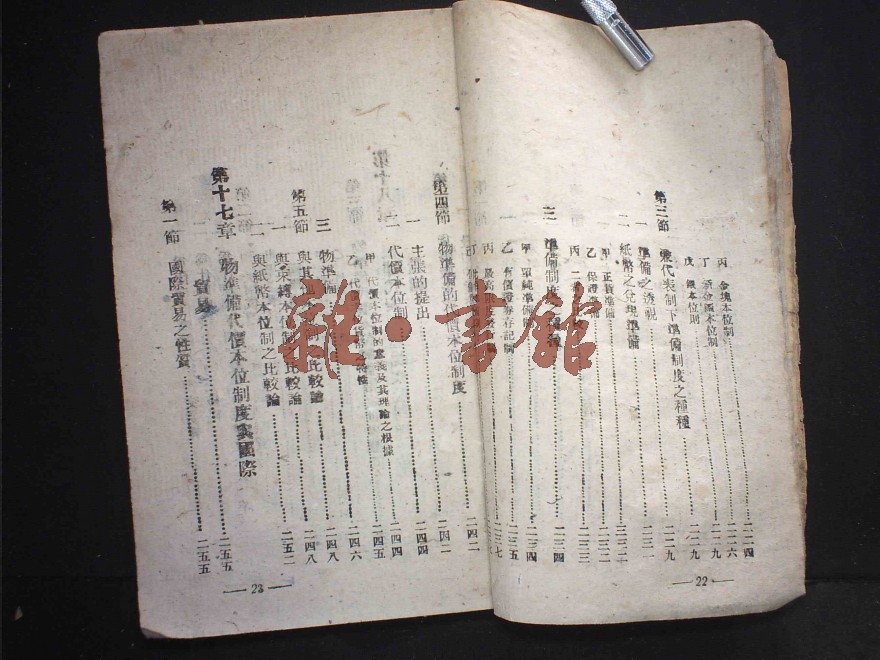 丙 金塊本位制 二二四
丁 金滙本位制 二二六
戊 銀本位則 二二九
第三節 兼代表制下準備制度之種種 二二九
一 準備之透視 二三一
二 紙幣之兌現準備 二三二
甲 正貨準備
乙 保證準備
丙 二
三 準備制度之種種 二三四
甲 單純準備 二三四
乙 有價證券存記制 二三五
丙 最高限度發 二三七
丁
第四節 物準備的代價本位制度 二四二
一 主張的提出 二四四
二 代價本位制 二四四
甲 代價本位制的意義及其理論之根據 二四五
乙 代價本位貨幣之特性 二四六
三 物準備 二四八
第五節 與其他本位制之比較論 二四八
一 與束縛本位制之比較論
二 與紙幣本位制之比較論 二五二
第十七章 物準備代價本位制度與國際貿易 二五五
第一節 國際貿易之性質 二五五
22
23
雜·書館